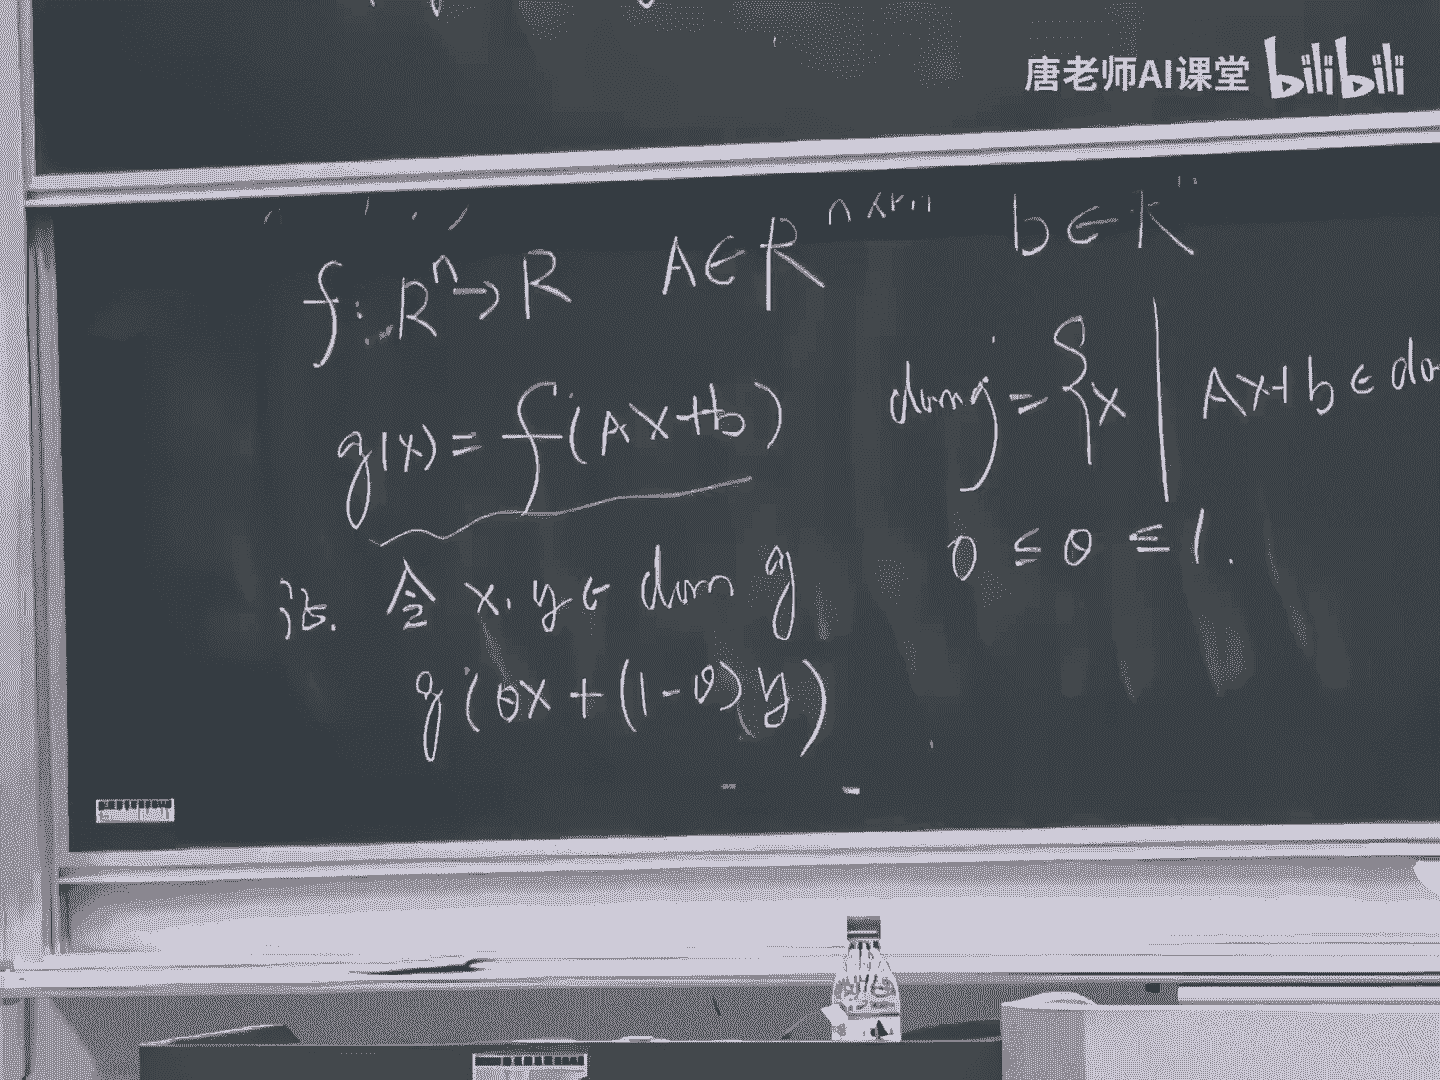 唐老师AI课堂 bilibili
f: Rⁿ → R A ∈ Rⁿˣᵐ b ∈ Rⁿ
g(x) = f(Ax+b) dom g = {x | Ax+b ∈ do
证. 令 x, y ∈ dom g 0 ≤ θ ≤ 1.
g(θx + (1-θ)y)